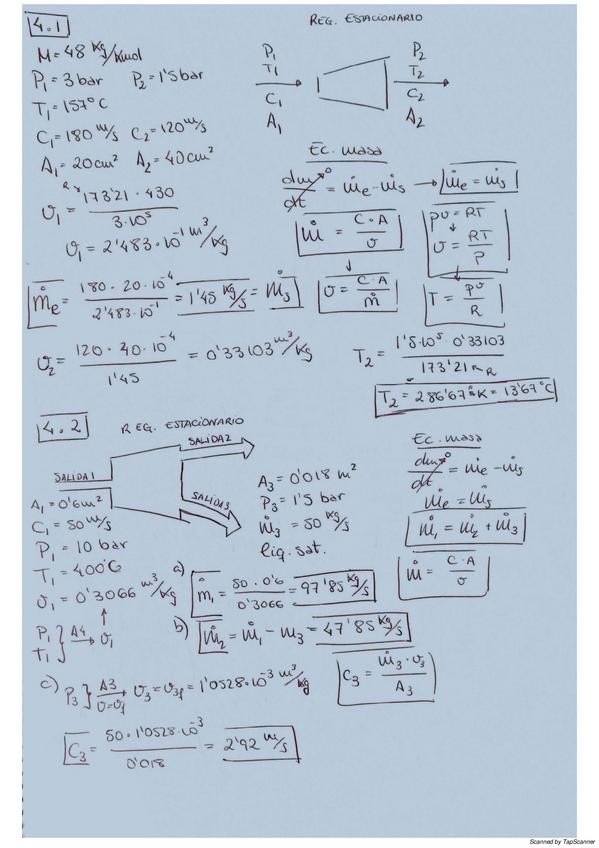 4.1
REG. ESTACIONARIO
M = 48 kg/kmol
P₁ = 3 bar P₂ = 1'5 bar
T₁ = 157°C
C₁ = 180 m/s C₂ = 120 m/s
A₁ = 20 cm² A₂ = 40 cm²
P₁
T₁
C₁
A₁
P₂
T₂
C₂
A₂
Ec. masa
dm/dt⁰ = ṁe - ṁs → ṁe = ṁs
R
υ₁ = 173'21 · 430 / 3·10⁵
υ₁ = 2'483·10⁻¹ m³/kg
ṁ = C·A / υ
υ = C·A / ṁ
pυ = RT
υ = RT / P
T = pυ / R
ṁe = 180 · 20·10⁻⁴ / 2'483·10⁻¹ = 1'45 kg/s = ṁs
υ₂ = 120 · 40·10⁻⁴ / 1'45 = 0'33103 m³/kg
T₂ = 1'5·10⁵ · 0'33103 / 173'21 R
T₂ = 286'67°K = 13'67°C
4.2
REG. ESTACIONARIO
SALIDA 2
SALIDA 1
SALIDA 3
A₁ = 0'6 m²
C₁ = 50 m/s
P₁ = 10 bar
T₁ = 400°C
υ₁ = 0'3066 m³/kg
P₁ } A4 → υ₁
T₁
A₃ = 0'018 m²
P₃ = 1'5 bar
ṁ₃ = 50 kg/s
liq. sat.
Ec. masa
dm/dt⁰ = ṁe - ṁs
ṁe = ṁs
ṁ₁ = ṁ₂ + ṁ₃
ṁ = C·A / υ
a) ṁ₁ = 50 · 0'6 / 0'3066 = 97'85 kg/s
b) ṁ₂ = ṁ₁ - ṁ₃ = 47'85 kg/s
c) P₃ } A3 → υ=υf υ₃ = υ₃f = 1'0528·10⁻³ m³/kg
C₃ = ṁ₃ · υ₃ / A₃
C₃ = 50 · 1'0528·10⁻³ / 0'018 = 2'92 m/s
Scanned by TapScanner